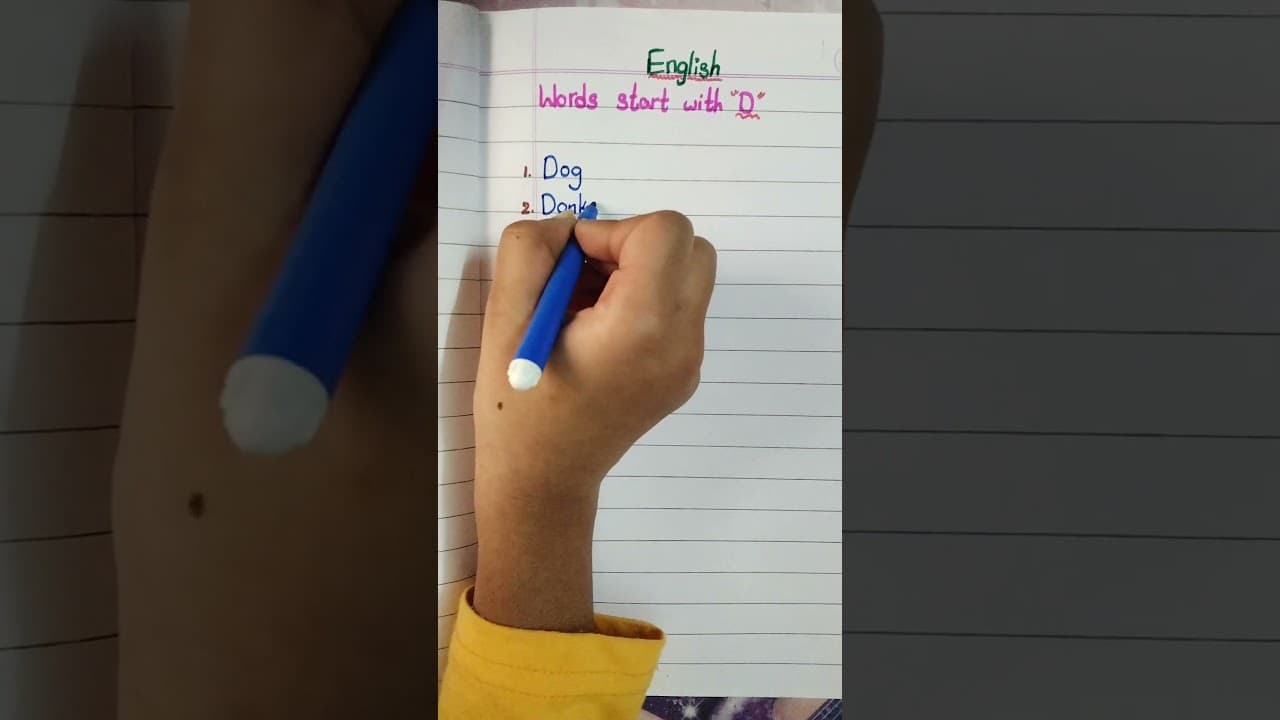 English
Words start with "D"
1. Dog
2. Donk